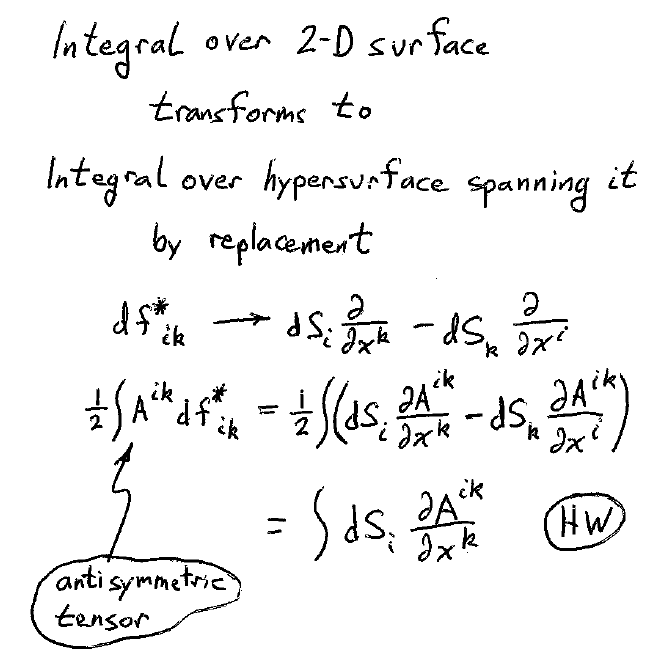 Integral over 2-D surface
transforms to
Integral over hypersurface spanning it
by replacement
df*_{ik} → dS_i ∂/∂x^k - dS_k ∂/∂x^i
1/2 ∫ A^{ik} df*_{ik} = 1/2 ∫ (dS_i ∂A^{ik}/∂x^k - dS_k ∂A^{ik}/∂x^i)
= ∫ dS_i ∂A^{ik}/∂x^k (HW)
antisymmetric
tensor